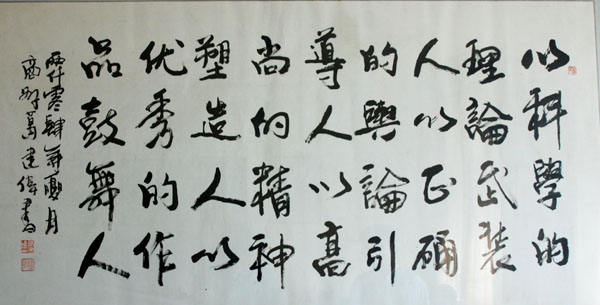 以科學的
理論武裝
人以正确
的輿論引
導人以高
尚的精神
塑造人以
优秀的作
品鼓舞人
零肆年夏月
建偉書